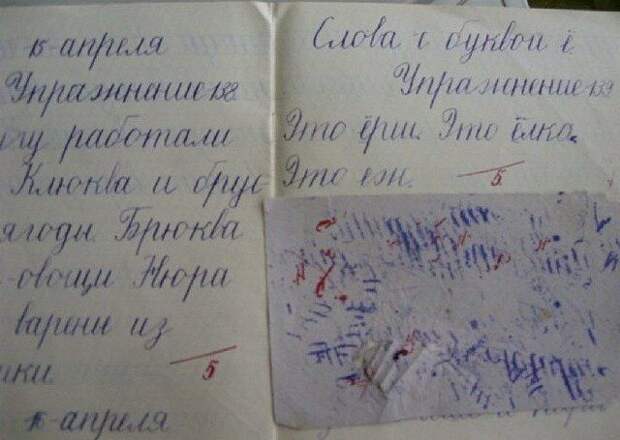 15 апреля
Упражнение
работали
Клюква и брус
ягоды. Брюква
-овощи Нюра
варенье из
5
15 апреля
Слова с буквой ё.
Упражнение
Это ёрш. Это ёлка.
Это еж.
5